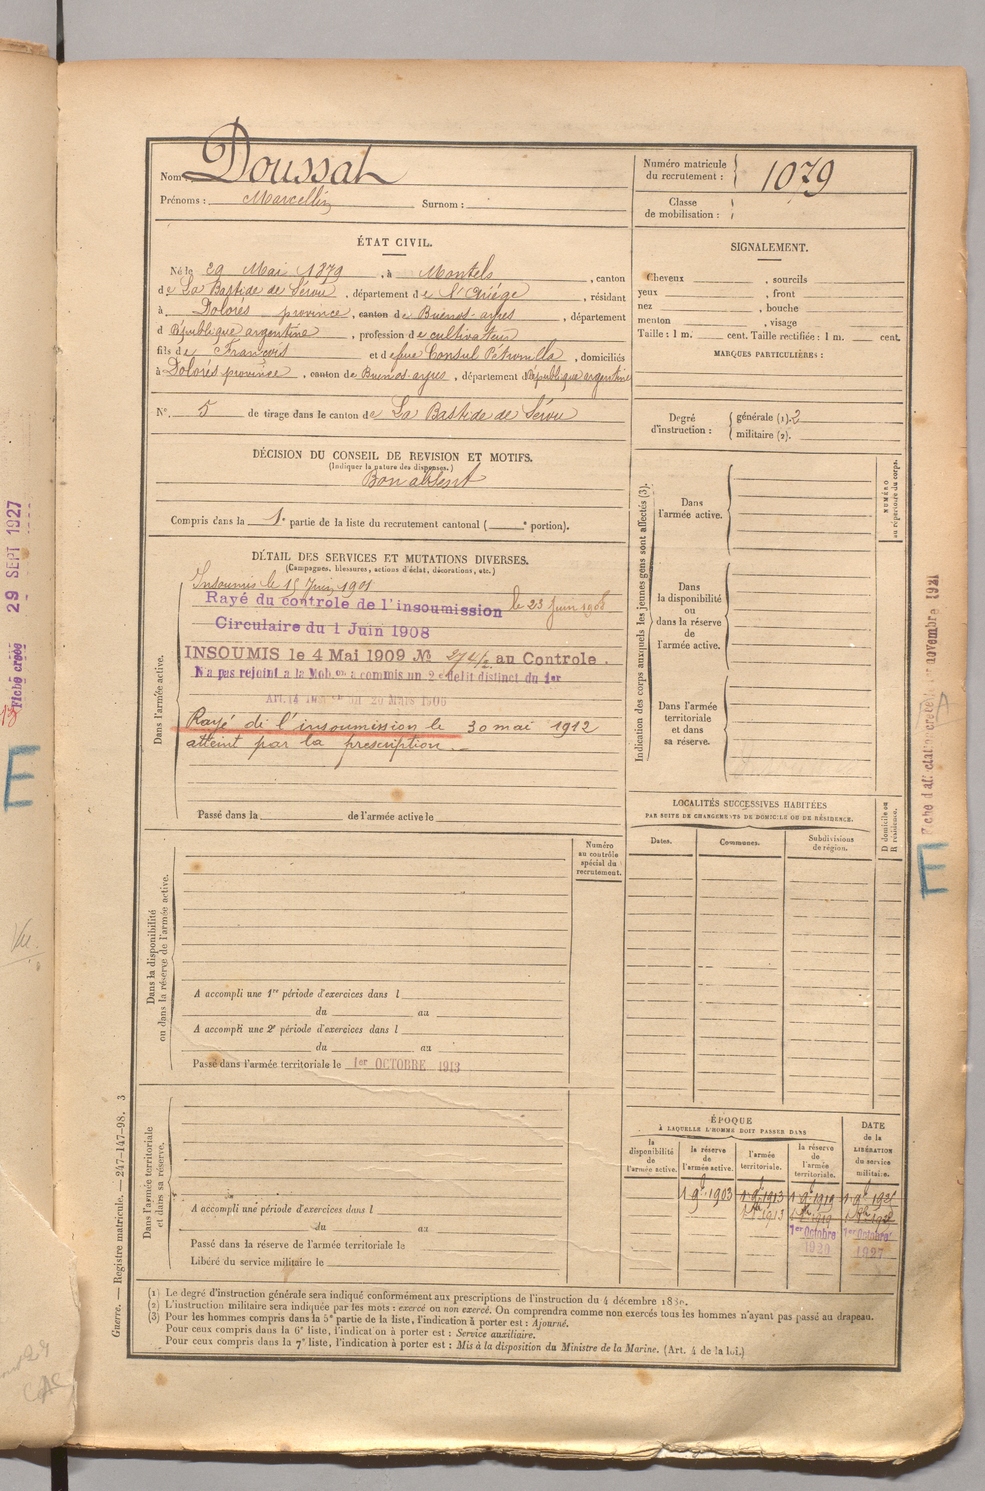 Nom : Doussat
Prénoms : Marcellin Surnom :
Numéro matricule du recrutement : 1079
Classe de mobilisation :
ÉTAT CIVIL.
Né le 29 Mai 1879, à Montels, canton
de La Bastide de Sérou, département de l'Ariége, résidant
à Dolorès province, canton de Buenos-ayres, département
d République argentine, profession de cultivateur
fils de François et de feue Consul Pétronilla, domiciliés
à Dolorès province, canton de Buenos-ayres, département République argentine
N° 5 de tirage dans le canton de La Bastide de Sérou
SIGNALEMENT.
Cheveux , sourcils
yeux , front
nez , bouche
menton , visage
Taille : 1 m. cent. Taille rectifiée : 1 m. cent.
MARQUES PARTICULIÈRES :
Degré d'instruction : générale (1). 2
militaire (2).
DÉCISION DU CONSEIL DE REVISION ET MOTIFS.
(Indiquer la nature des dispenses.)
Bon absent
Compris dans la 1e partie de la liste du recrutement cantonal ( e portion).
DÉTAIL DES SERVICES ET MUTATIONS DIVERSES.
(Campagnes, blessures, actions d'éclat, décorations, etc.)
Dans l'armée active.
Insoumis le 15 Juin 1901
Rayé du controle de l'insoumission le 23 Juin 1908
Circulaire du 1 Juin 1908
INSOUMIS le 4 Mai 1909 No au Controle.
N'a pas rejoint a la Mob.on a commis un 2e délit distinct du 1er
Rayé de l'insoumission le 30 mai 1912
atteint par la prescription.
Passé dans la de l'armée active le
Indication des corps auxquels les jeunes gens sont affectés (3).
NUMÉRO au répertoire du corps.
Dans l'armée active.
Dans la disponibilité ou dans la réserve de l'armée active.
Dans l'armée territoriale et dans sa réserve.
LOCALITÉS SUCCESSIVES HABITÉES
PAR SUITE DE CHANGEMENTS DE DOMICILE OU DE RÉSIDENCE.
Dates. Communes. Subdivisions de région. D domicile ou R résidence.
Dans la disponibilité ou dans la réserve de l'armée active.
Numéro au contrôle spécial du recrutement.
A accompli une 1re période d'exercices dans l
du au
A accompli une 2e période d'exercices dans l
du au
Passé dans l'armée territoriale le 1er OCTOBRE 1913
Dans l'armée territoriale et dans sa réserve.
A accompli une période d'exercices dans l
du au
Passé dans la réserve de l'armée territoriale le
Libéré du service militaire le
ÉPOQUE
À LAQUELLE L'HOMME DOIT PASSER DANS
la disponibilité de l'armée active. la réserve de l'armée active. l'armée territoriale. la réserve de l'armée territoriale. DATE de la LIBÉRATION du service militaire.
1 9e 1903 1 9e 1913 1 9e 1919
1913 1919
1er Octobre 1920 1er Octobre 1927
(1) Le degré d'instruction générale sera indiqué conformément aux prescriptions de l'instruction du 4 décembre
(2) L'instruction militaire sera indiquée par les mots : exercé ou non exercé. On comprendra comme non exercés tous les hommes n'ayant pas passé au drapeau.
(3) Pour les hommes compris dans la 5e partie de la liste, l'indication à porter est : Ajourné.
Pour ceux compris dans la 6e liste, l'indication à porter est : Service auxiliaire.
Pour ceux compris dans la 7e liste, l'indication à porter est : Mis à la disposition du Ministre de la Marine. (Art. 4 de la loi.)
Guerre. — Registre matricule. — 247-147-98. 3
Fiche créée 29 SEPT 1927
E
E
Vu.